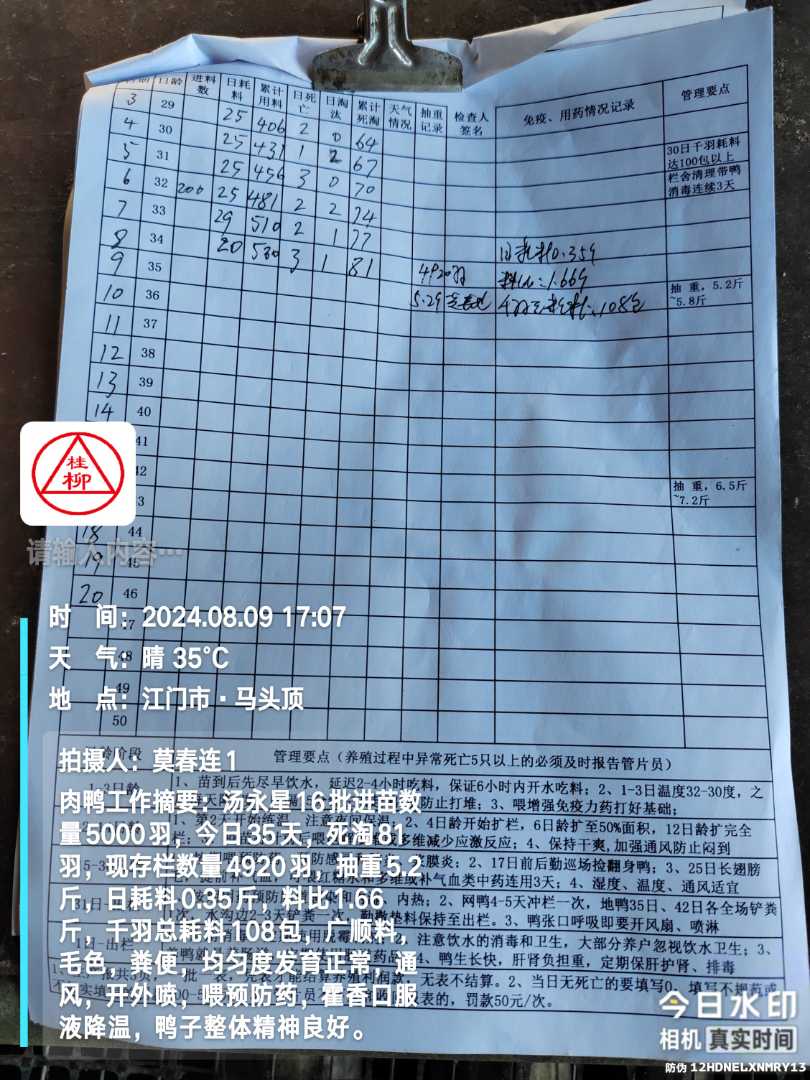 日龄 进料数 日耗料 累计用料 日死亡 日淘汰 累计死淘 天气情况 抽重记录 检查人签名 免疫、用药情况记录 管理要点
3 29
4 30 25 406 2 0 64
5 31 25 431 1 2 67 30日千羽耗料达100包以上
6 32 200 25 456 3 0 70 栏舍清理带鸭消毒连续3天
7 33 25 481 2 2 74
8 34 29 510 2 1 77
9 35 20 530 3 1 81 4920羽 日耗料0.359
10 36 5.29 料比:1.669 抽重,5.2斤~5.8斤
11 37 108包
12 38
13 39
14 40
41
42
43 抽重,6.5斤~7.2斤
18 44
19 45
20 46
47
48
49
50
桂柳
请输入内容…
时 间:2024.08.09 17:07
天 气:晴 35℃
地 点:江门市·马头顶
拍摄人:莫春连1
肉鸭工作摘要:汤永星16批进苗数
量5000羽,今日35天,死淘81
羽,现存栏数量4920羽,抽重5.2
斤,日耗料0.35斤,料比1.66
斤,千羽总耗料108包,广顺料,
毛色,粪便,均匀度发育正常,通
风,开外喷,喂预防药,藿香口服
液降温,鸭子整体精神良好。
管理要点(养殖过程中异常死亡5只以上的必须及时报告管片员)
1、苗到后先尽早饮水,延迟2-4小时吃料,保证6小时内开水吃料;2、1-3日温度32-30度,之
防止打堆;3、喂增强免疫力药打好基础;
1、第2天开始练温,注意夜间保温;2、4日龄开始扩栏,6日龄扩至50%面积,12日龄扩完全
多维减少应激反应;4、保持干爽,加强通风防止闷到
2、17日前后勤巡场捡翻身鸭;3、25日长翅膀
红糖水和多维或补气血类中药连用3天;4、湿度、温度、通风适宜
内热;2、网鸭4-5天冲栏一次,地鸭35日、42日各全场铲粪
一次,勤撒垫料保持至出栏。3、鸭张口呼吸即要开风扇、喷淋
注意饮水的消毒和卫生,大部分养户忽视饮水卫生;3、
4、鸭生长快,肝肾负担重,定期保肝护肾、排毒
无表不结算。2、当日无死亡的要填写0,
罚款50元/次。
今日水印
相机 真实时间
防伪 12HDNELXNMRY13